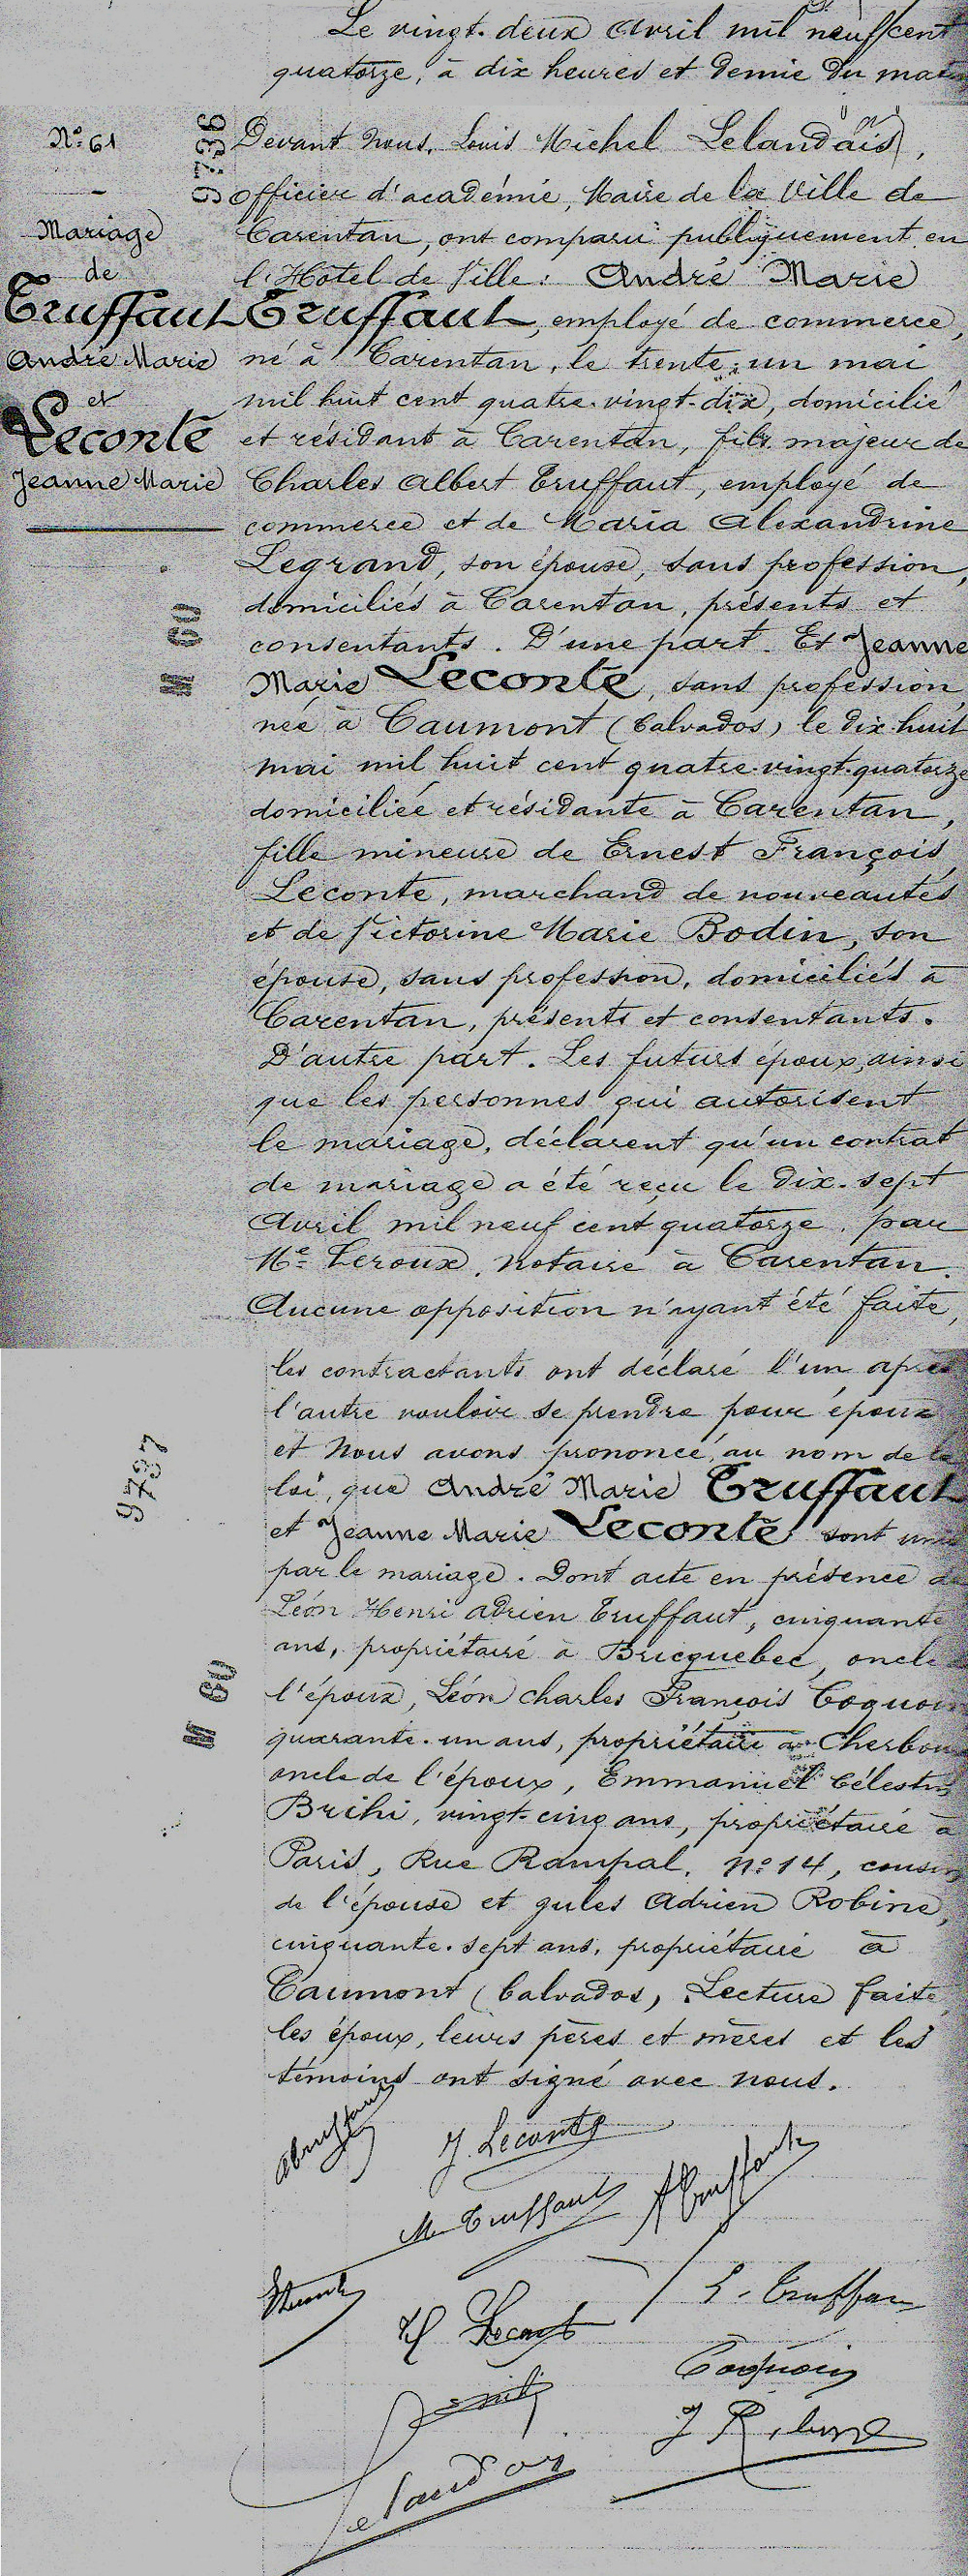 Le vingt-deux Avril mil neuf cent
quatorze, à dix heures et demie du
N° 61
9736
Mariage
de
Truffaut
André Marie
et
Leconte
Jeanne Marie
M 60
Devant Nous, Louis Michel Lelandais,
Officier d'académie, Maire de la Ville de
Carentan, ont comparu publiquement en
l'Hôtel de Ville : André Marie
Truffaut, employé de commerce,
né à Carentan, le trente-un mai
mil huit cent quatre-vingt-dix, domicilié
et résidant à Carentan, fils majeur de
Charles Albert Truffaut, employé de
commerce et de Maria Alexandrine
Legrand, son épouse, sans profession,
domiciliés à Carentan, présents et
consentants. D'une part. Et Jeanne
Marie Leconte, sans profession,
née à Caumont (Calvados) le dix-huit
mai mil huit cent quatre-vingt-quatorze
domiciliée et résidante à Carentan,
fille mineure de Ernest François
Leconte, marchand de nouveautés
et de Victorine Marie Bodin, son
épouse, sans profession, domiciliés à
Carentan, présents et consentants.
D'autre part. Les futurs époux, ainsi
que les personnes qui autorisent
le mariage, déclarent qu'un contrat
de mariage a été reçu le dix-sept
Avril mil neuf cent quatorze, par
Me Leroux, Notaire à Carentan.
Aucune opposition n'ayant été faite,
9737
M 60
les contractants ont déclaré l'un après
l'autre vouloir se prendre pour époux
et Nous avons prononcé, au nom de la
loi, que André Marie Truffaut
et Jeanne Marie Leconte sont unis
par le mariage. Dont acte en présence de
Léon Henri Adrien Truffaut, cinquante
ans, propriétaire à Bricquebec, oncle
l'époux, Léon Charles François
quarante-un ans, propriétaire à
oncle de l'époux, Emmanuel Célestin
Brihi, vingt-cinq ans, propriétaire à
Paris, Rue Rampal, N° 14, cousin
de l'épouse et Jules Adrien Robine,
cinquante-sept ans, propriétaire à
Caumont (Calvados, Lecture faite,
les époux, leurs pères et mères et les
témoins ont signé avec Nous.
J. Leconte
M Truffaut
A Truffaut
L. Truffaut
Leconte
Coquoin
J Robine
Lelandais